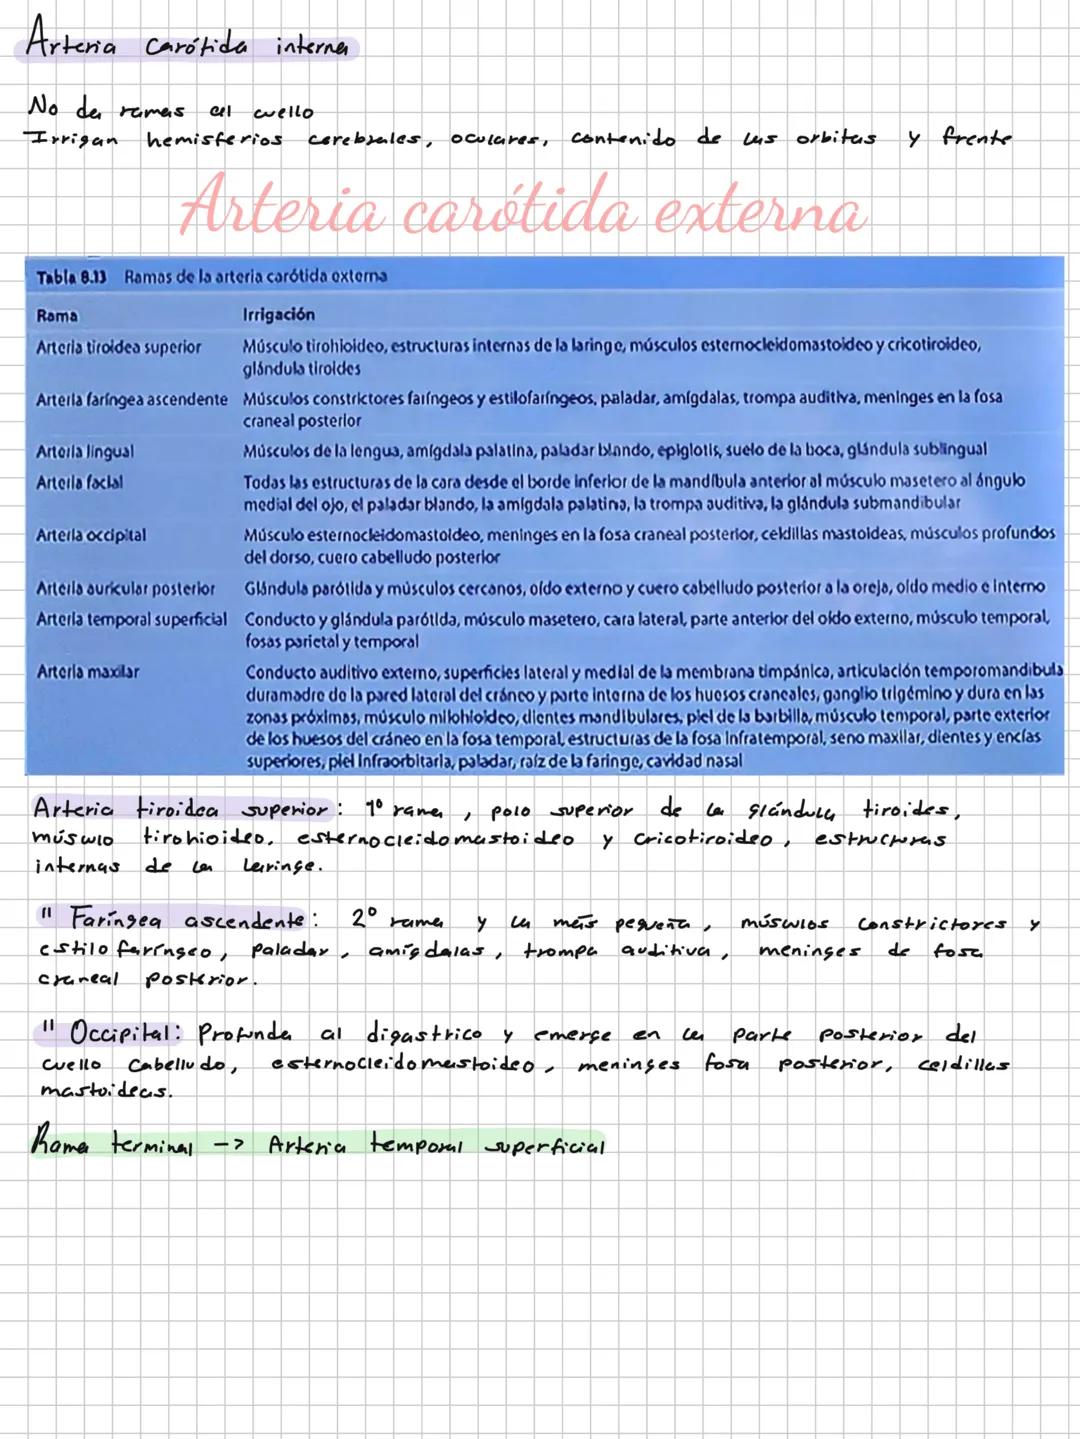 Arteria carótida interna
No da ramas al cuello
Irrigan hemisferios cerebrales, oculares, contenido de las orbitas y frente
Arteria carótida externa
Tabla 8.13 Ramas de la arteria carótida externa
Rama Irrigación
Arteria tiroidea superior Músculo tirohioideo, estructuras internas de la laringe, músculos esternocleidomastoideo y cricotiroideo,
glándula tiroides
Arteria faríngea ascendente Músculos constrictores faríngeos y estilofaríngeos, paladar, amígdalas, trompa auditiva, meninges en la fosa
craneal posterior
Arteria lingual Músculos de la lengua, amígdala palatina, paladar blando, epiglotis, suelo de la boca, glándula sublingual
Arteria facial Todas las estructuras de la cara desde el borde inferior de la mandíbula anterior al músculo masetero al ángulo
medial del ojo, el paladar blando, la amígdala palatina, la trompa auditiva, la glándula submandibular
Arteria occipital Músculo esternocleidomastoideo, meninges en la fosa craneal posterior, celdillas mastoideas, músculos profundos
del dorso, cuero cabelludo posterior
Arteria auricular posterior Glándula parótida y músculos cercanos, oído externo y cuero cabelludo posterior a la oreja, oído medio e interno
Arteria temporal superficial Conducto y glándula parótida, músculo masetero, cara lateral, parte anterior del oído externo, músculo temporal,
fosas parietal y temporal
Arteria maxilar Conducto auditivo externo, superficies lateral y medial de la membrana timpánica, articulación temporomandibula
duramadre de la pared lateral del cráneo y parte interna de los huesos craneales, ganglio trigémino y dura en las
zonas próximas, músculo milohioideo, dientes mandibulares, piel de la barbilla, músculo temporal, parte exterior
de los huesos del cráneo en la fosa temporal, estructuras de la fosa infratemporal, seno maxilar, dientes y encías
superiores, piel infraorbitaria, paladar, raíz de la faringe, cavidad nasal
Arteria tiroidea superior: 1º rama, polo superior de la glándula tiroides,
músculo tirohioideo, esternocleidomastoideo y cricotiroideo, estructuras
internas de la laringe.
" Faríngea ascendente: 2º rama y la más pequeña, músculos constrictores y
estilofaríngeo, paladar, amígdalas, trompa auditiva, meninges de fosa
craneal posterior.
" Occipital: Profunda al digastrico y emerge en la parte posterior del
cuello cabelludo, esternocleidomastoideo, meninges fosa posterior, celdillas
mastoideas.
Rama terminal -> Arteria temporal superficial